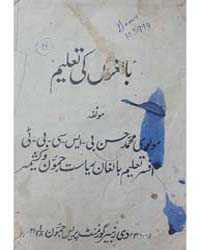 بالغوں کی تعلیم
مولفہ
مولوی محمد حسن بی-ایس-سی-بی-ٹی
افسر تعلیم بالغان ریاست جموں و کشمیر
دی رنبیر گورنمنٹ پریس جموں